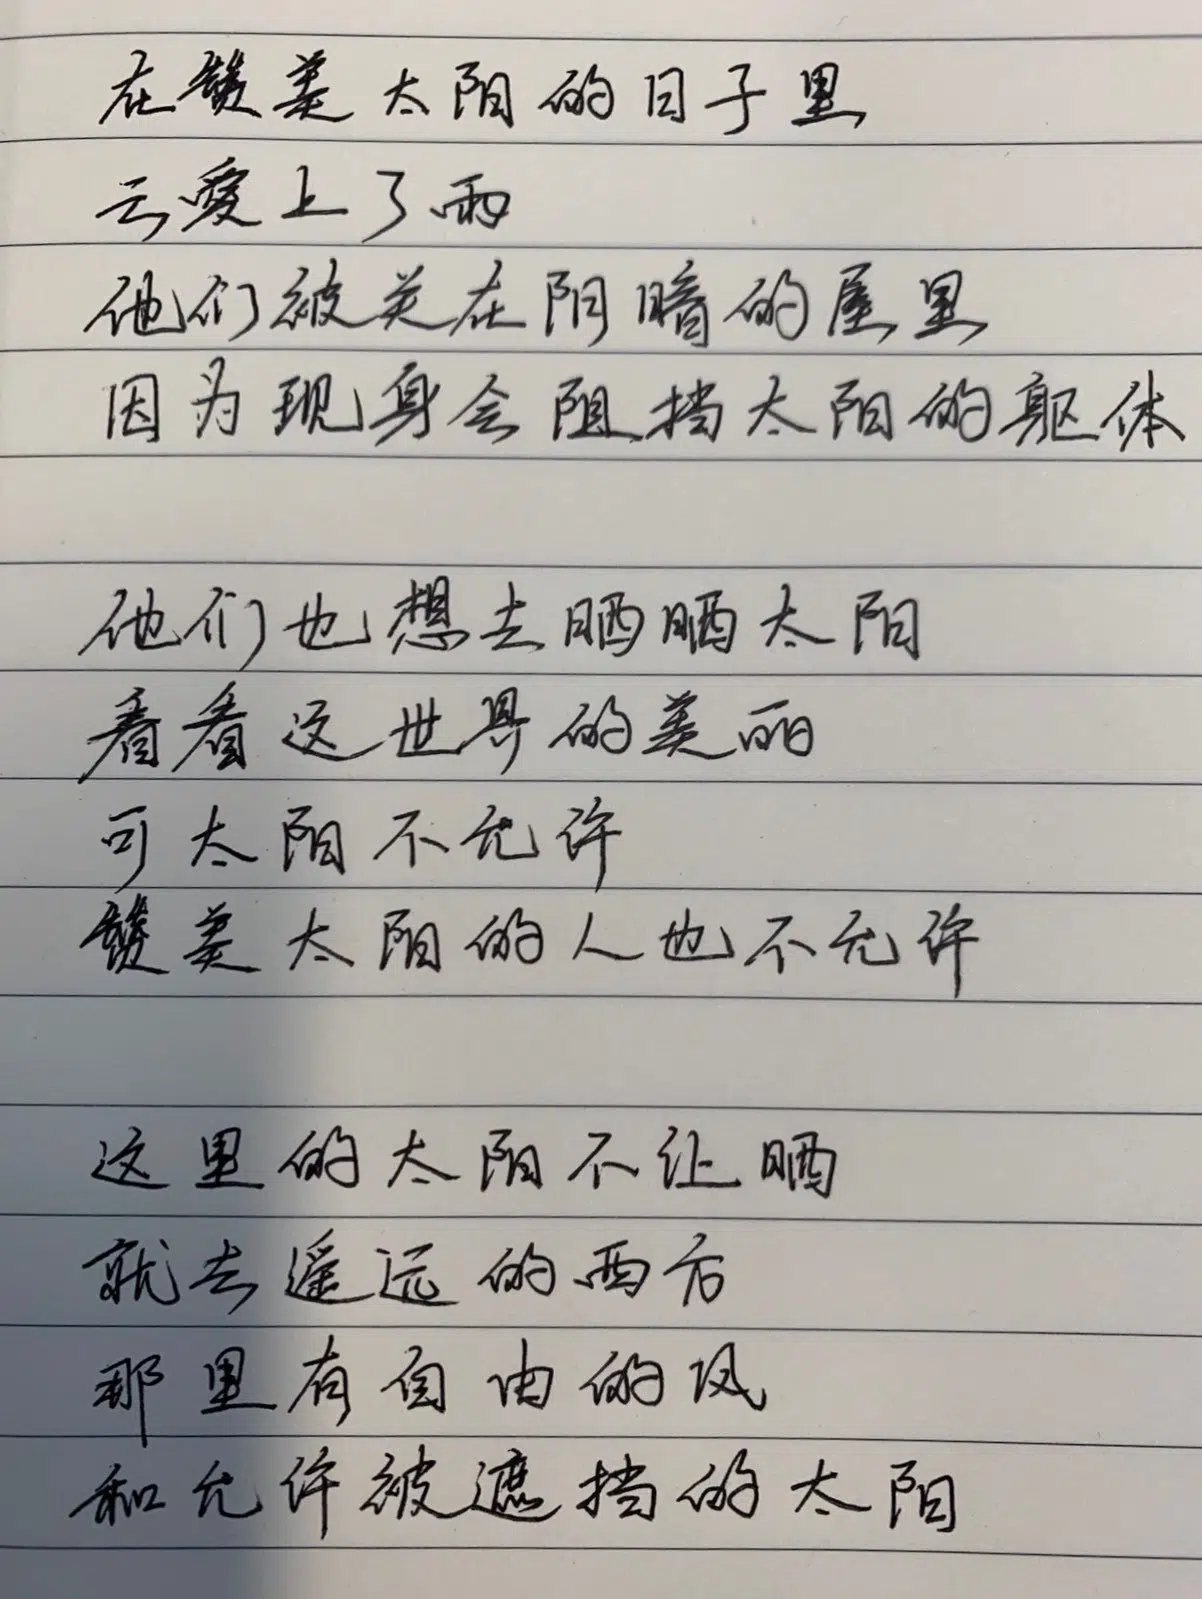 在赞美太阳的日子里
云愛上了雨
他们被关在阴暗的屋里
因为现身会阻挡太阳的躯体
他们也想去晒晒太阳
看看这世界的美丽
可太阳不允许
赞美太阳的人也不允许
这里的太阳不让晒
就去遥远的西方
那里有自由的风
和允许被遮挡的太阳